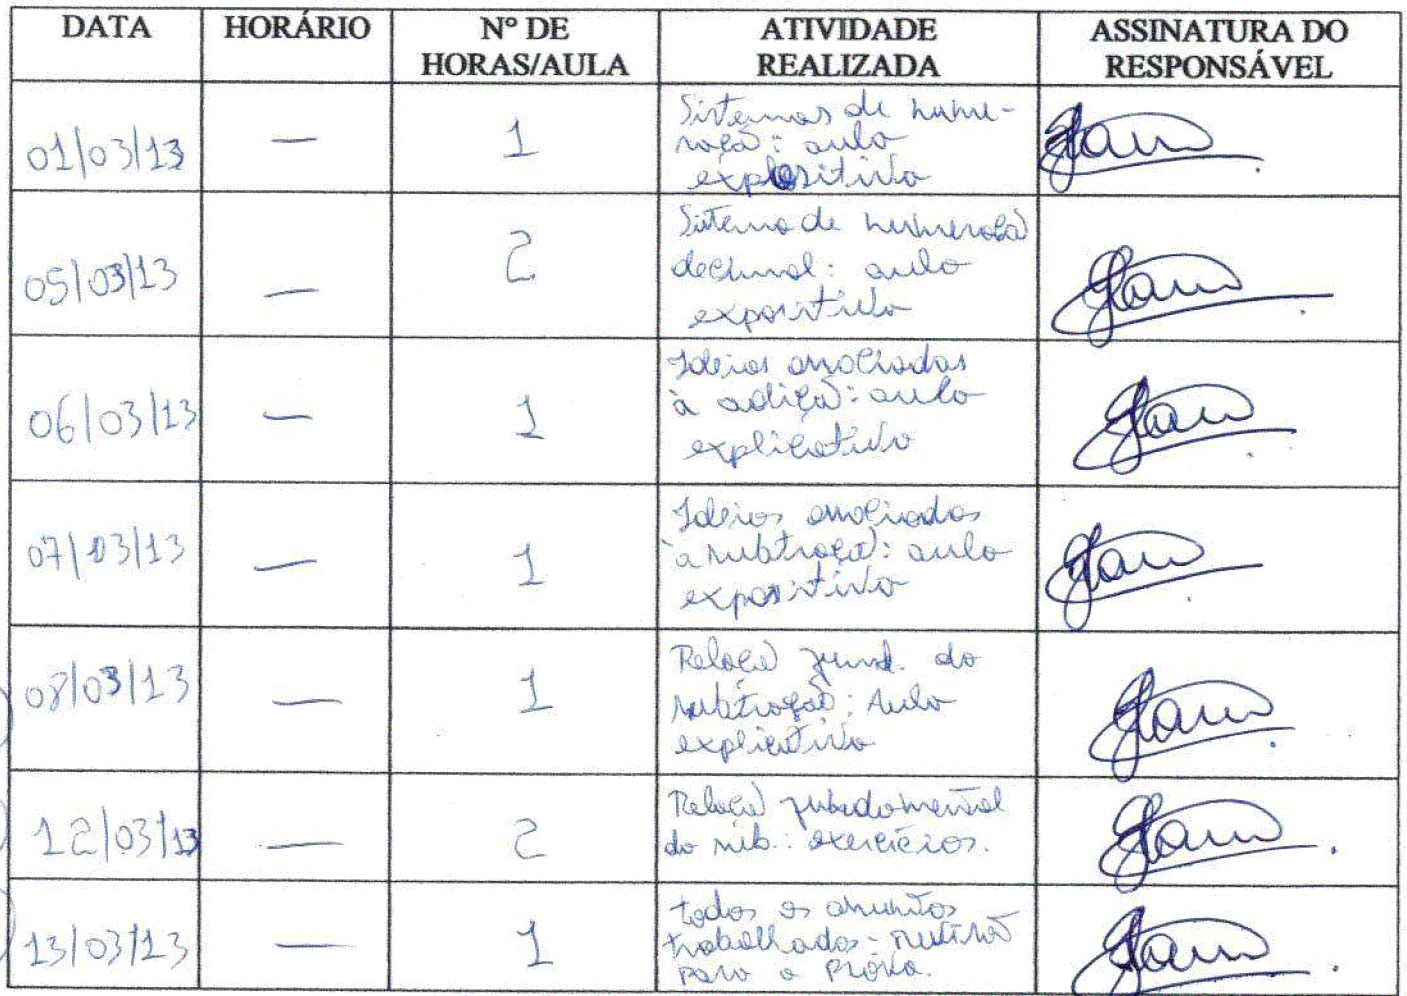 DATA HORÁRIO Nº DE HORAS/AULA ATIVIDADE REALIZADA ASSINATURA DO RESPONSÁVEL
01/03/13 — 1 Sistemas de nume-
ração: aula
expositiva
05/03/13 — 2 Sistema de numeração
decimal: aula
expositiva
06/03/13 — 1 Ideias associadas
à adição: aula
explicativa
07/03/13 — 1 Ideias associadas
à subtração: aula
expositiva
08/03/13 — 1 Relação fund. da
subtração: Aula
explicativa
12/03/13 — 2 Relação fundamental
da sub.: exercícios.
13/03/13 — 1 todos os assuntos
trabalhados - revisão
para a prova.